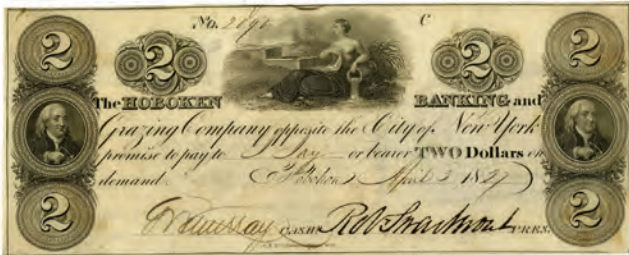 2 No. 2896 C 2
2 2
The HOBOKEN BANKING and
Grazing Company opposite the City of New York
promise to pay to Day or bearer TWO Dollars on
demand. Hoboken April 2 1827
CASHR. Robt Swartwout PRES.
2 2